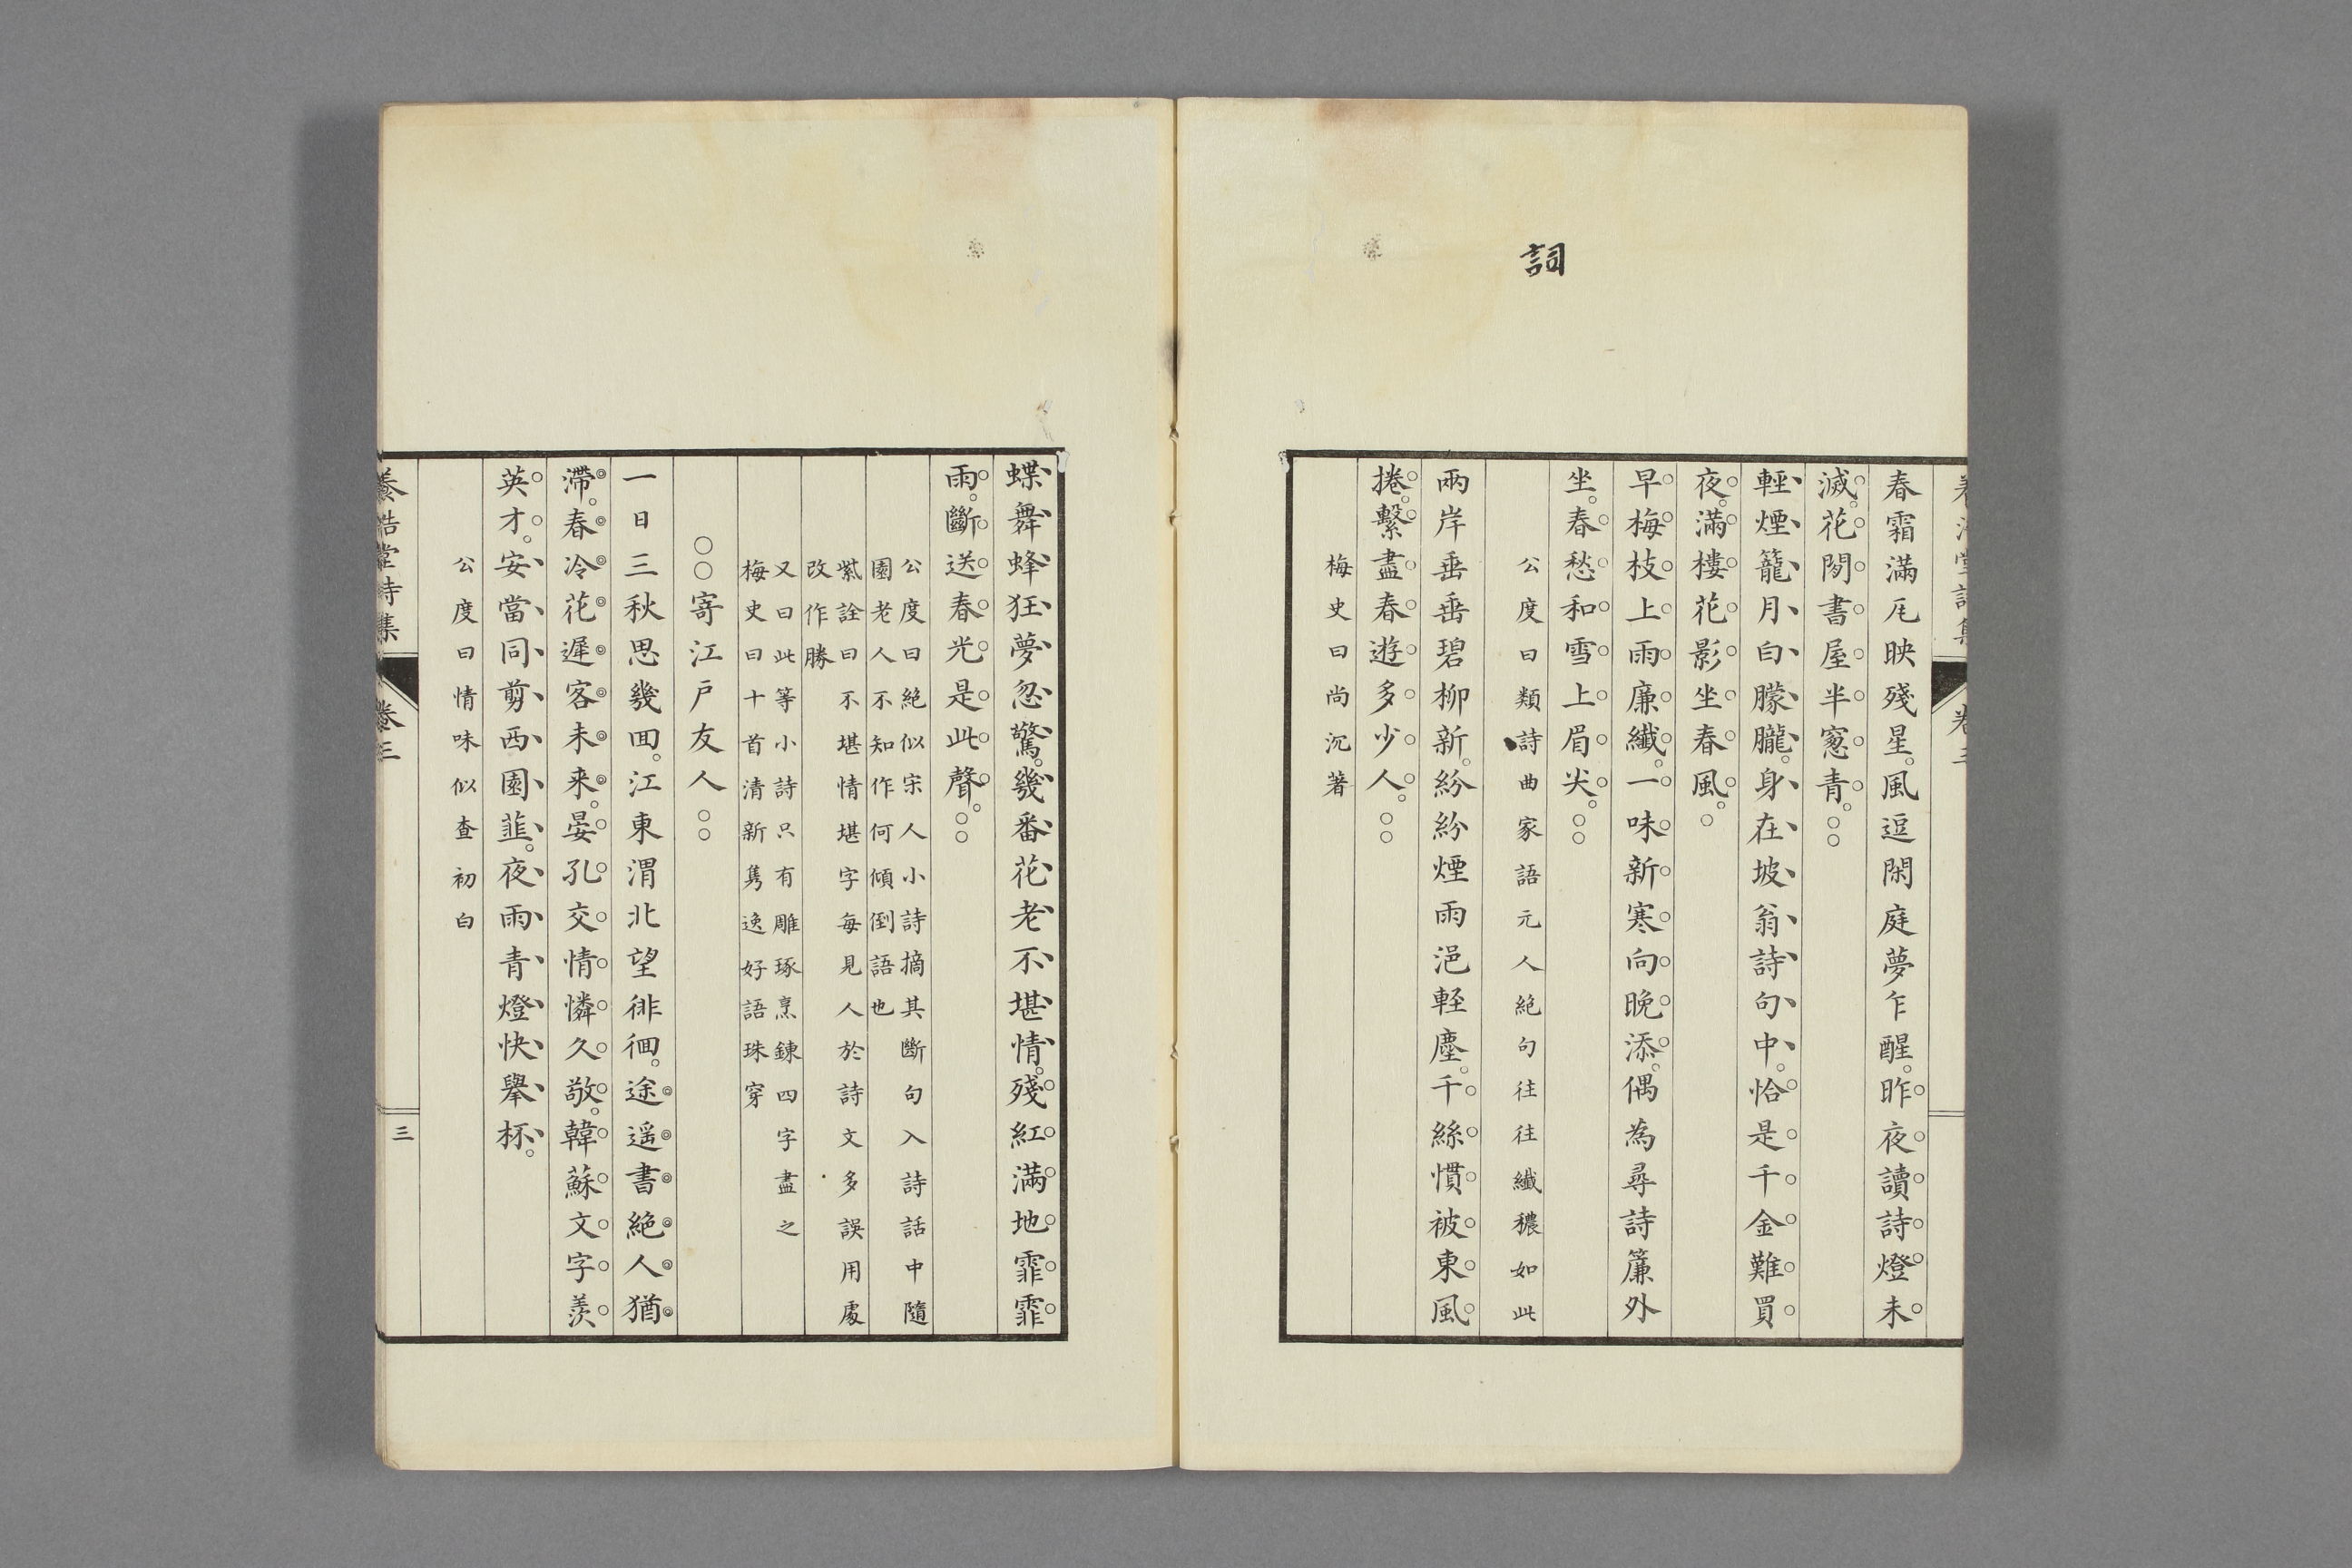 詞
春霜滿瓦映殘星。風逗閑庭夢乍醒。昨夜讀詩燈未
滅。花閣書屋半窻青。○○
輕煙籠月白朦朧。身在坡翁詩句中。恰是千金難買
夜。滿樓花影坐春風。○
早梅枝上雨廉纖。一味新寒向晚添。偶為尋詩簾外
坐。春愁和雪上眉尖。○○
公度曰類詩曲家語元人絕句往往纖穠如此
兩岸垂垂碧柳新。紛紛煙雨浥輕塵。千絲慣被東風
捲。繫盡春遊多少人。○○
梅史曰尚沉著
蝶舞蜂狂夢忽驚。幾番花老不堪情。殘紅滿地霏霏
雨。斷送春光是此聲。○○
公度曰絕似宋人小詩摘其斷句入詩話中隨
園老人不知作何傾倒語也
紫詮曰不堪情堪字每見人於詩文多誤用處
改作勝
又曰此等小詩只有雕琢烹鍊四字盡之
梅史曰十首清新雋逸好語珠穿
○○寄江戶友人○○
一日三秋思幾回。江東渭北望徘徊。途遥書絕人猶
滯。春冷花遲客未来。晏孔交情憐久敬。韓蘇文字羨
英才。安當同剪西園韮。夜雨青燈快舉杯。
公度曰情味似查初白
養浩堂詩集
卷三
三